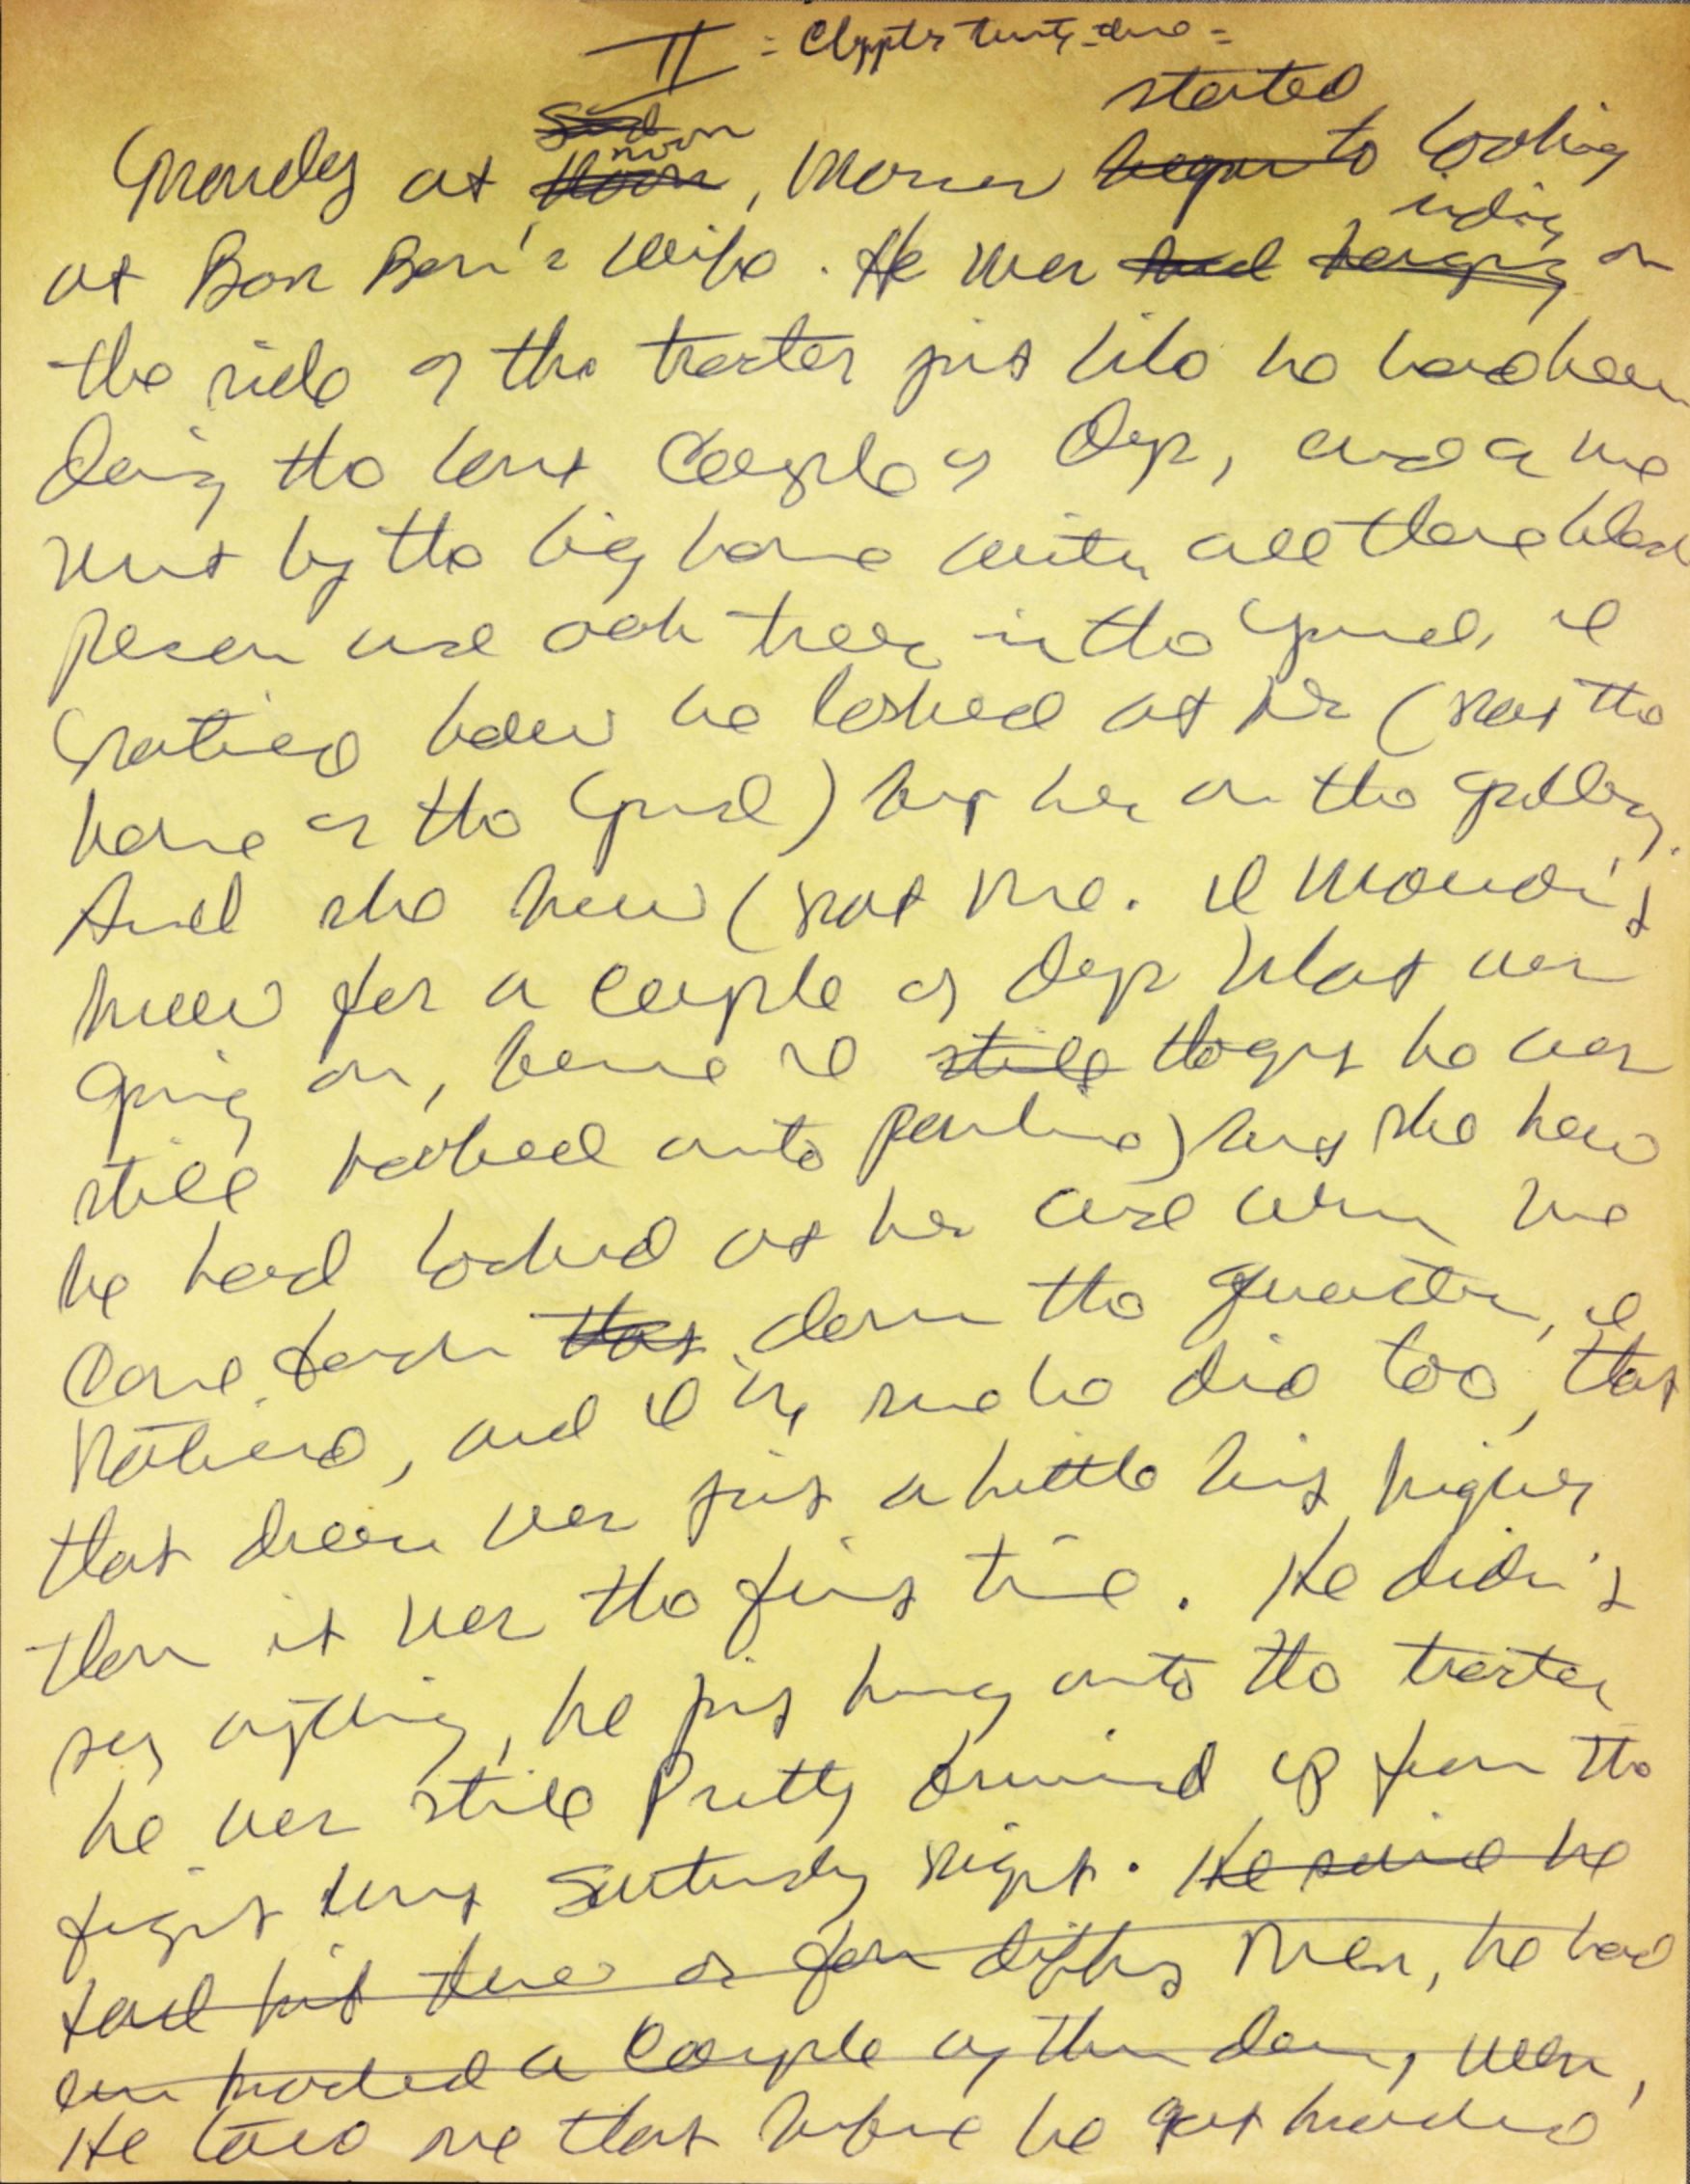 II = Chapter twenty-two =
started
Sund noon
Monday at noon, Marcus began to looking
riding
at Bon Bon's wife. He was had hanging on
the side of the tractor just like he had been
doing the last couple of days, and a we
went by the big house with all those
pecan and oak trees in the yard, I
noticed how he looked at her (not the
house or the yard) but her on the gallery.
And she knew (not me. I wouldn't
know for a couple of days what was
going on, because I still thought he was
still hooked onto Pauline) but she knew
he had looked at her and when we
came back that down the quarter, I
noticed, and I'm sure he did too, that
that dress was just a little bit higher
than it was the first time. He didn't
say anything, he just hung onto the tractor
he was still pretty bruised up from the
fight last Saturday night. He said he
had hit three or four different men, he had
even knocked a couple of them down, well,
He told me that before he got knocked